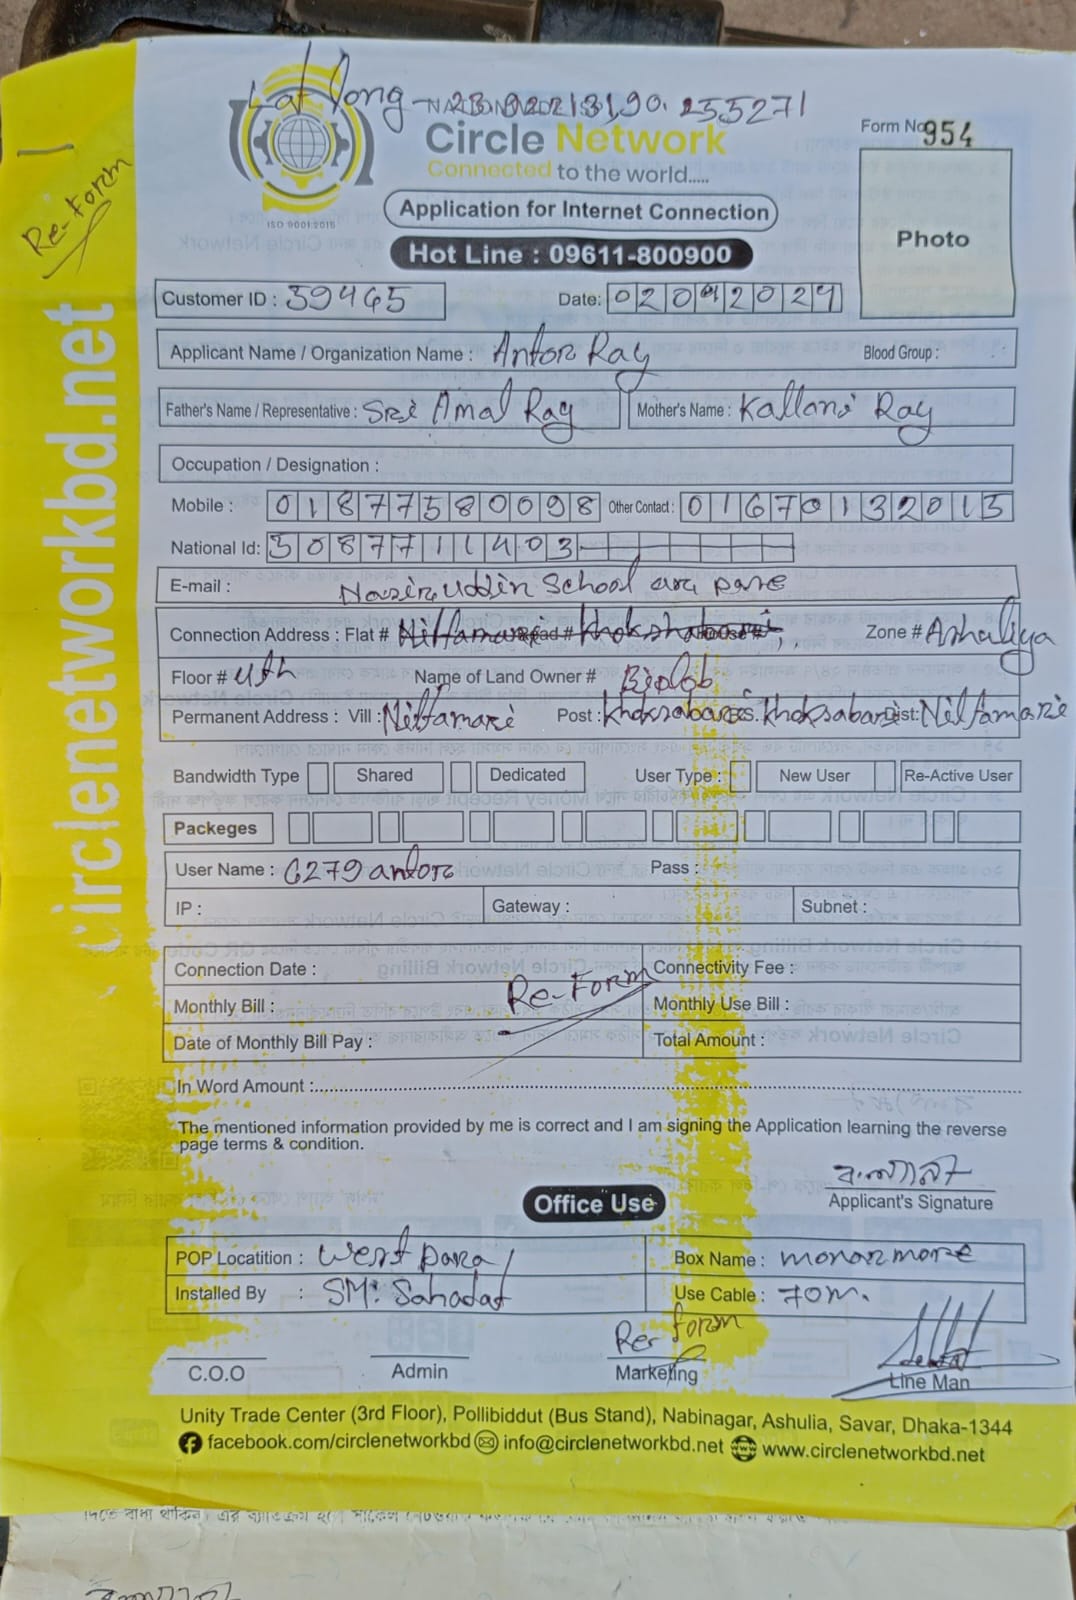 Lat Long
Circle Network
Connected to the world.....
Form No 954
Re-Form
ISO 9001:2015
Application for Internet Connection
Hot Line : 09611-800900
Photo
circlenetworkbd.net
Customer ID : 39465 Date: 02042024
Applicant Name / Organization Name : Antor Ray Blood Group :
Father's Name / Representative : Sri Amal Ray Mother's Name : Kallani Ray
Occupation / Designation :
Mobile : 01877580098 Other Contact : 01670132015
National Id: 5087711403
E-mail : Nasir Uddin School
Connection Address : Flat # Nilfamari Road # Khoksabari House # Zone # Ashuliya
Floor # 4th Name of Land Owner # Biplob
Permanent Address : Vill : Nilfamari Post : Khoksabari P.S. Khoksabari Dist: Nilfamari
Bandwidth Type Shared Dedicated User Type : New User Re-Active User
Packeges
User Name : 6279antor Pass :
IP : Gateway : Subnet :
Connection Date : Connectivity Fee :
Re-Form
Monthly Bill : Monthly Use Bill :
Date of Monthly Bill Pay : Total Amount :
In Word Amount :
The mentioned information provided by me is correct and I am signing the Application learning the reverse
page terms & condition.
Applicant's Signature
Office Use
POP Locatition : West para Box Name :
Installed By : SM: Sahadat Use Cable : 70m.
Re form
C.O.O Admin Marketing Line Man
Unity Trade Center (3rd Floor), Pollibiddut (Bus Stand), Nabinagar, Ashulia, Savar, Dhaka-1344
facebook.com/circlenetworkbd info@circlenetworkbd.net www.circlenetworkbd.net